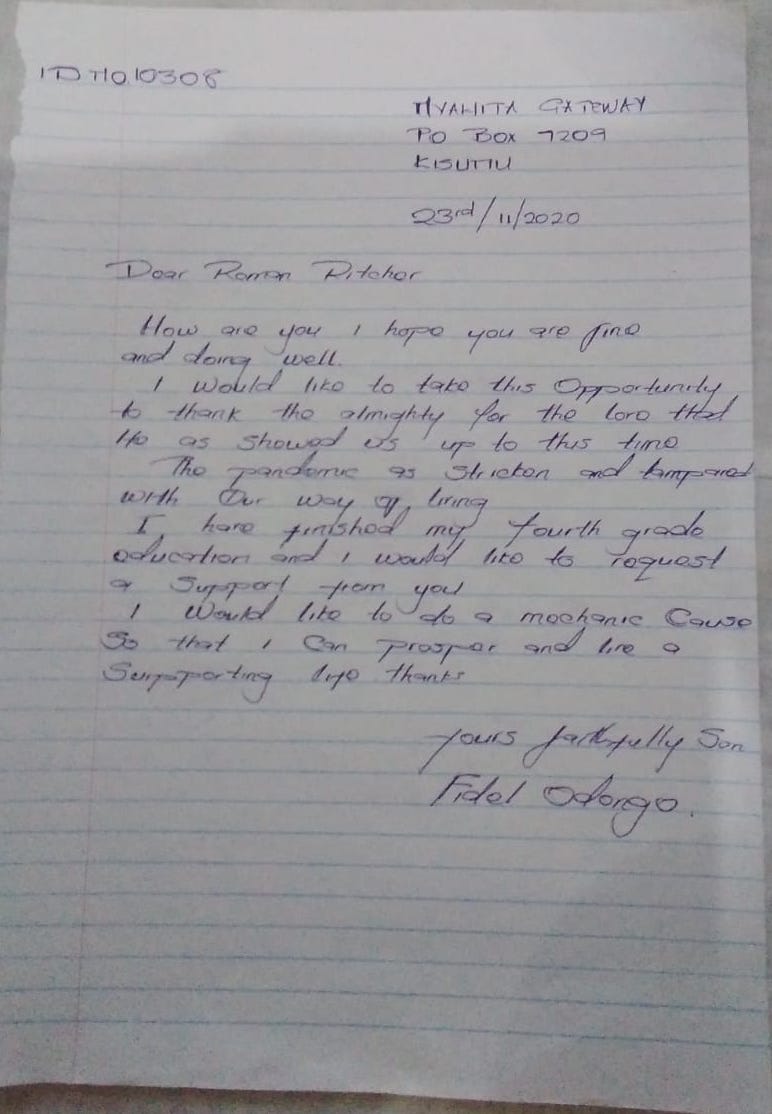 ID NO.10308
NYALITA GATEWAY
PO BOX 7209
KISUMU
23rd/11/2020
Dear Roman Ritcher
How are you I hope you are fine
and doing well.
I would like to take this Opportunity
to thank the almighty for the love that
He as showed us up to this time
The pandemic as stricken and tampared
with Our way of living
I have finished my fourth grade
education and I would like to request
a Support from you
I Would like to do a mechanic Cause
So that I Can prosper and live a
Surpporting life thanks
Yours faithfully Son
Fidel Odongo.